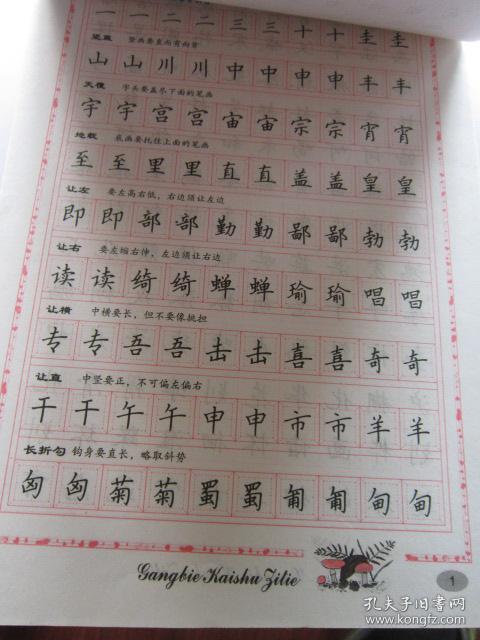 一 一 二 二 三 三 十 十 圭 圭
竖直 竖画要直而有向背
山 山 川 川 中 中 申 申 丰 丰
天覆 字头要盖尽下面的笔画
宇 宇 宫 宫 宙 宙 宗 宗 宵 宵
地载 底画要托住上面的笔画
至 至 里 里 直 直 盖 盖 皇 皇
让左 要左高右低，右边须让左边
即 即 部 部 勤 勤 鄙 鄙 勃 勃
让右 要左缩右伸，左边须让右边
读 读 绮 绮 蝉 蝉 瑜 瑜 唱 唱
让横 中横要长，但不要像挑担
专 专 吾 吾 击 击 喜 喜 奇 奇
让直 中竖要正，不可偏左偏右
干 干 午 午 申 申 市 市 羊 羊
长折勾 钩身要直长，略取斜势
匈 匈 菊 菊 蜀 蜀 匍 匍 甸 甸
Gangbie Kaishu Zitie
1
孔夫子旧书网
kongfz.com